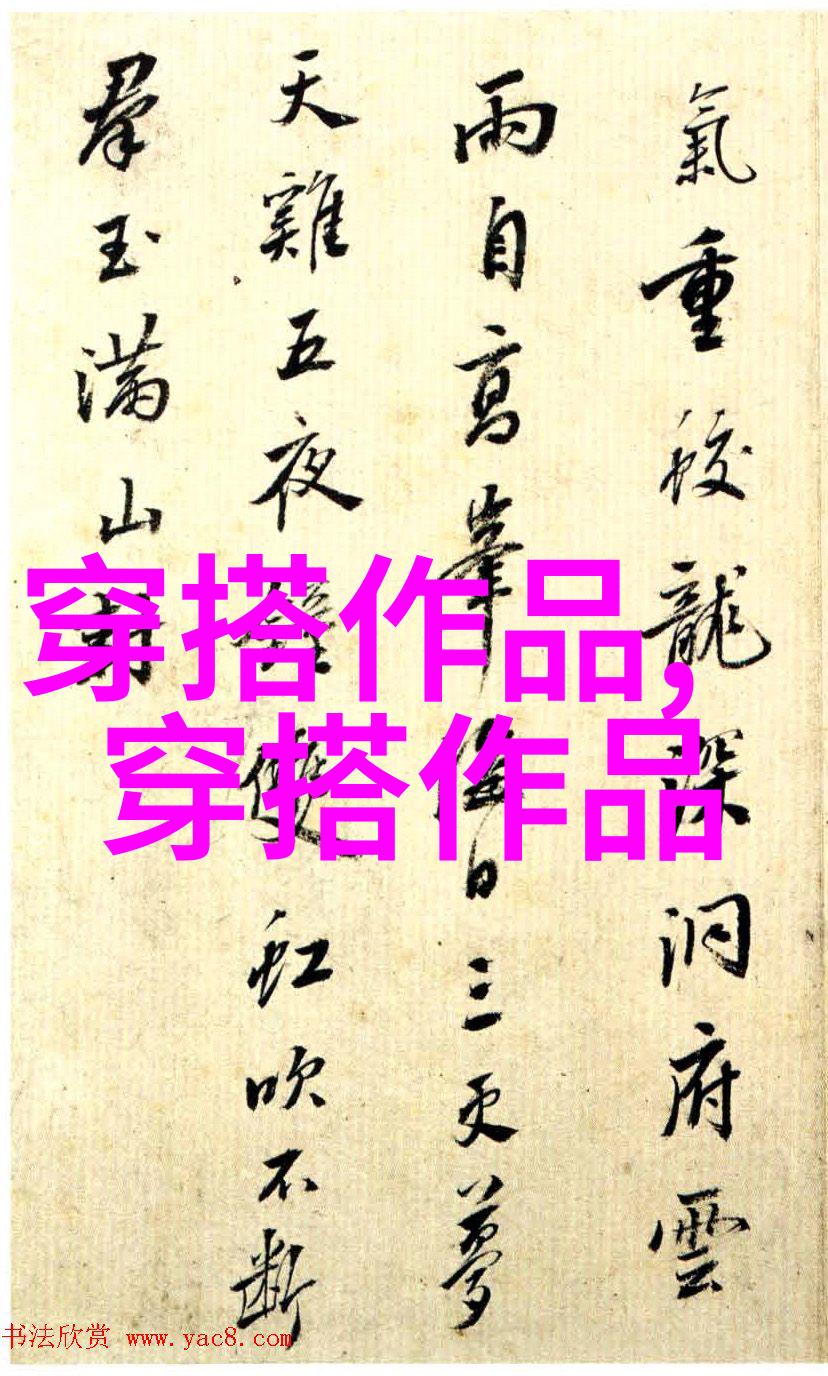 氣重蛟龍深洞府雲
雨自高峯海日三更夢
天雞五夜雙虹吹不斷
羣玉滿山
穿搭作品,
穿搭作品
书法欣赏 www.yac8.com